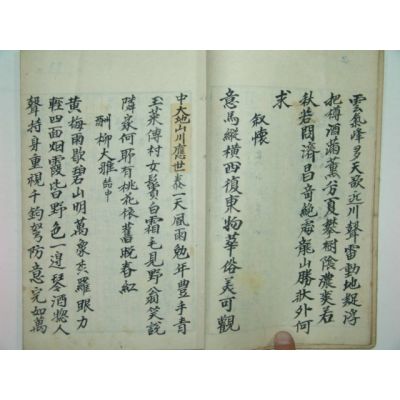 雲氣峰多天欲近川聲雷動地疑浮
把樽酒菊薰谷夏攀樹陰濃爽若
秋若問濟昌奇絶處龍山勝狀外何
求
敍懷
意馬縱橫西復東物華俗美可觀
中大地山川應世泰一天風雨勉年豊手青
玉菜傳村女鬢白霜毛見野翁笑說
隣家何耶有桃花依舊晩春紅
酬柳大雅
黃梅雨歇碧山明萬象森羅眼力
輕四面烟霞皆野色一邊琴酒惣人
聲持身重視千鈞弩防意完如萬